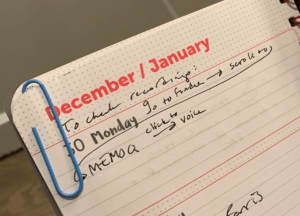 December / January
To check recordings:
30 Monday go to Finder → scroll to
↳ MEMO click to → voice